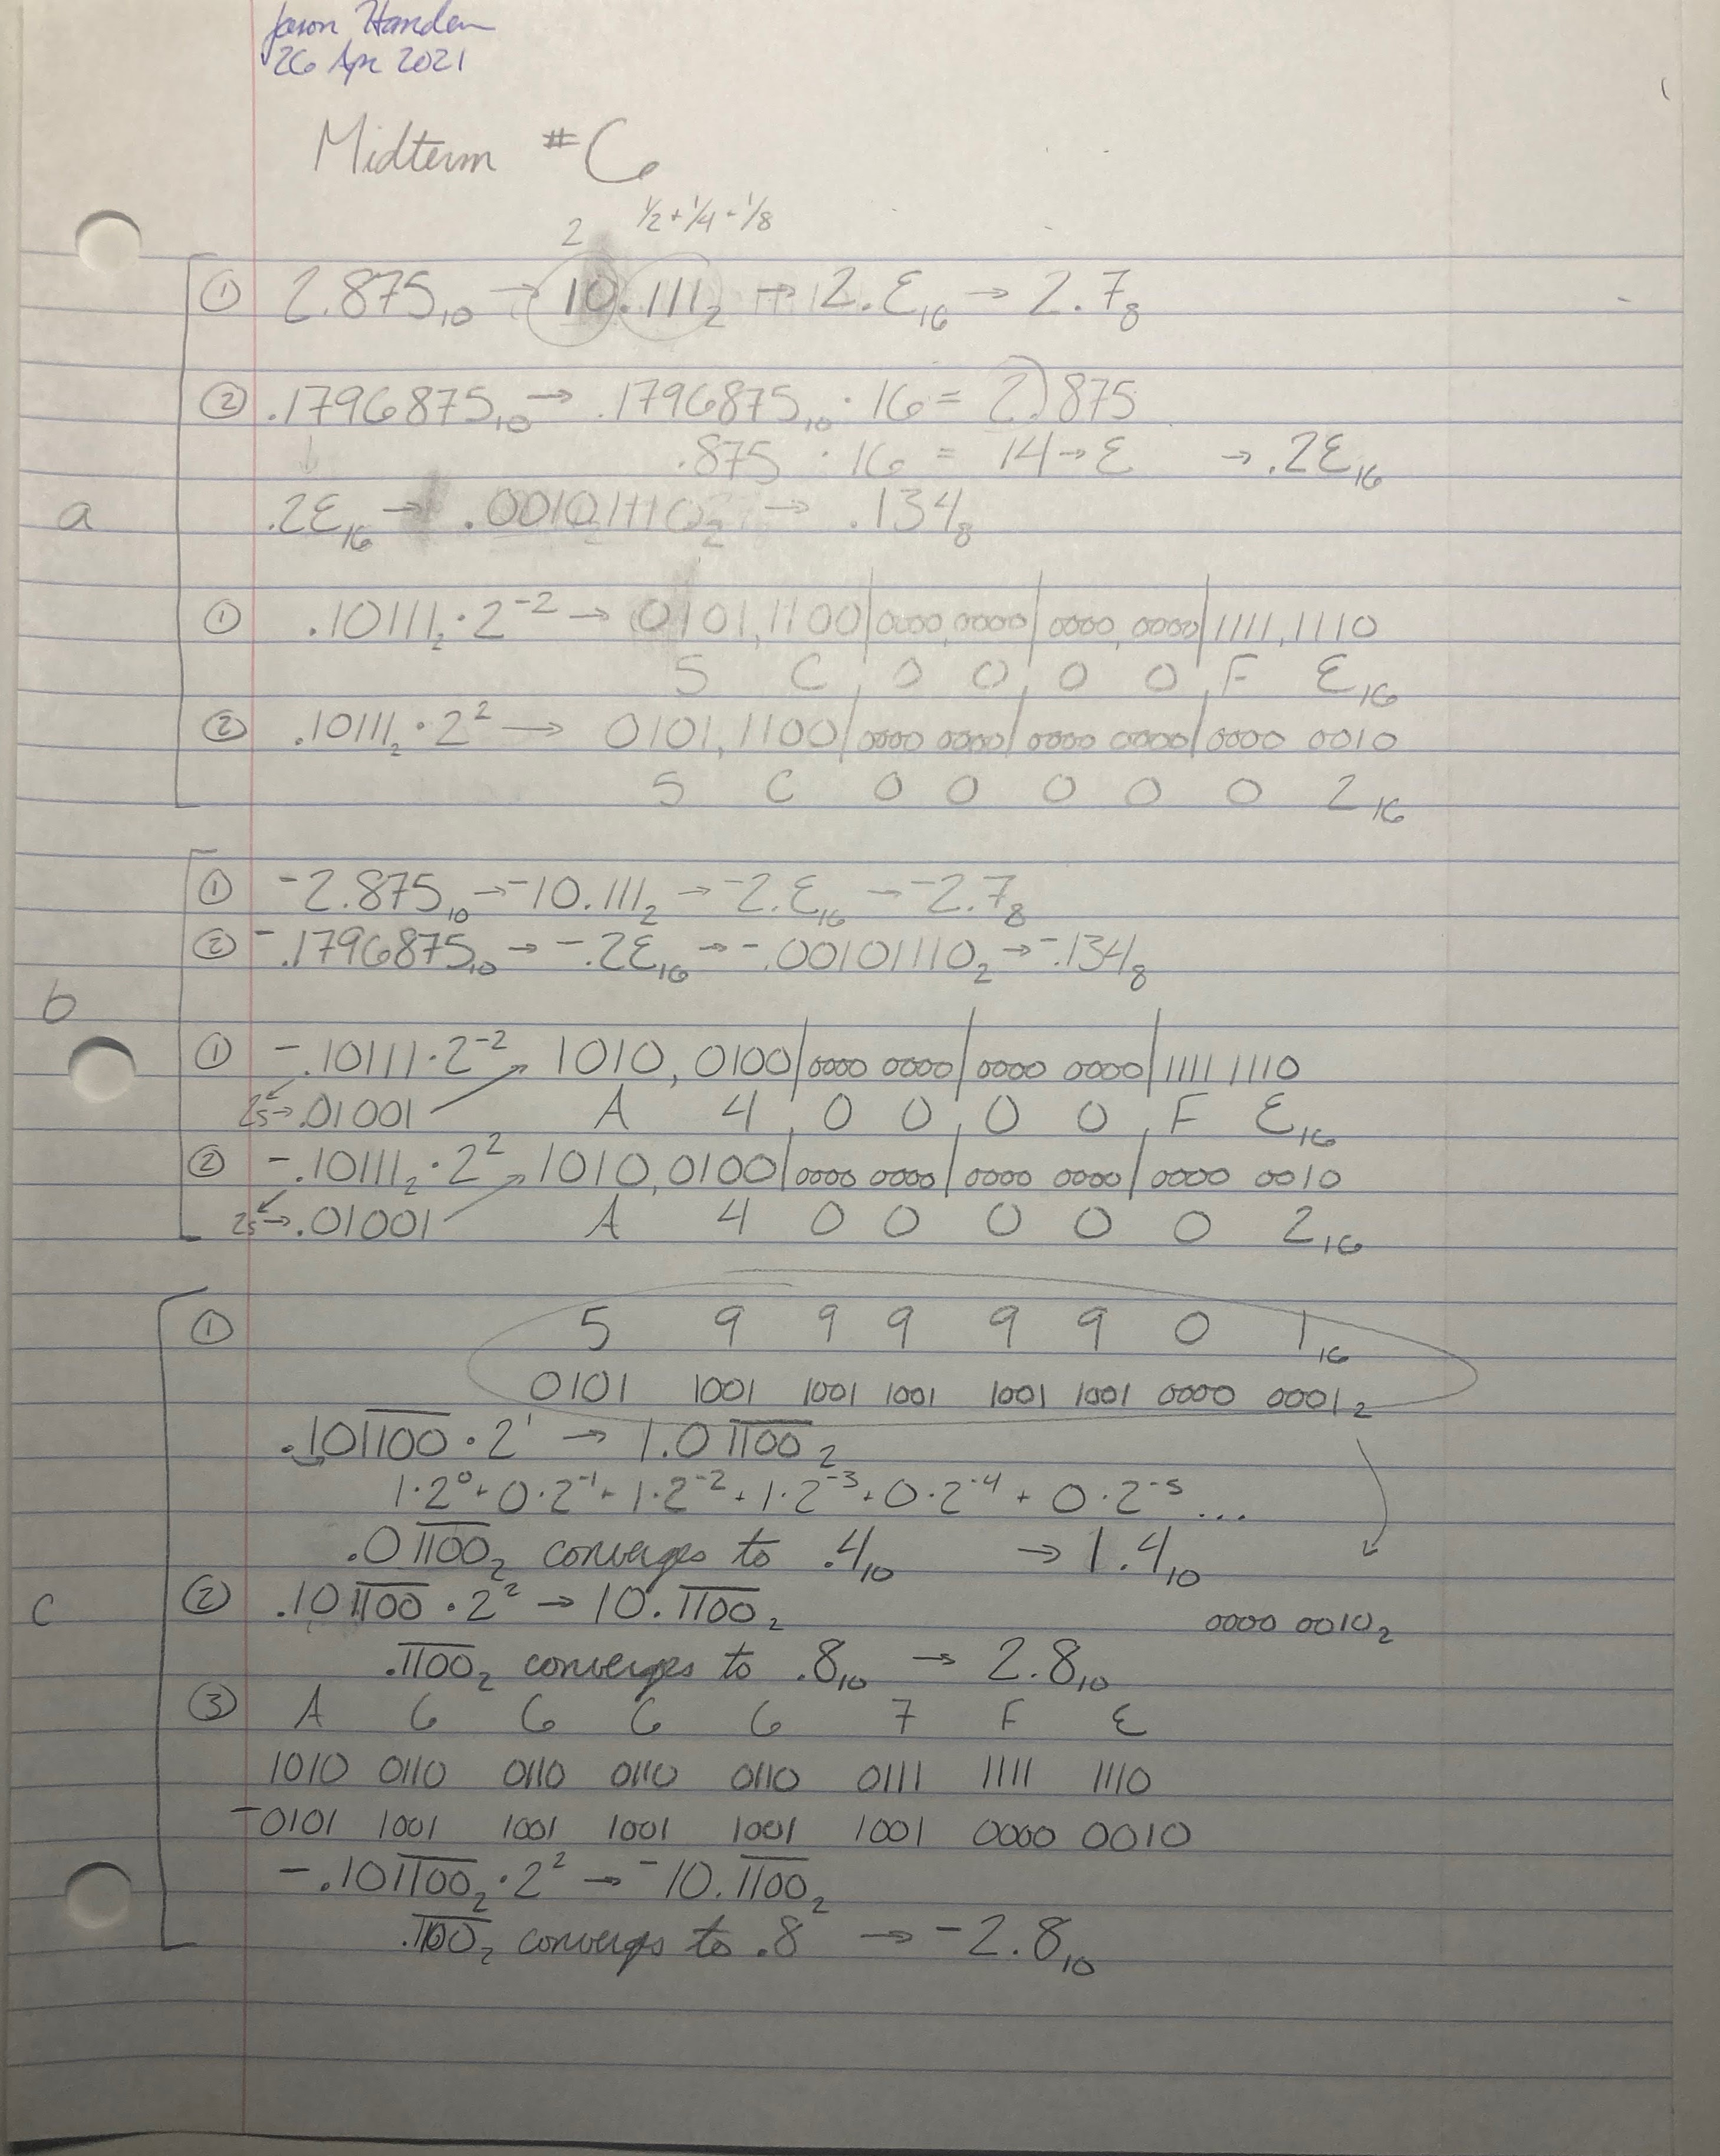 26 Apr 2021
Midterm #6
2 1/2+1/4+1/8
① 2.875₁₀ → 10.111₂ → 2.E₁₆ → 2.7₈
② .1796875₁₀ → .1796875₁₀ · 16 = 2.875
.875 · 16 = 14 → E → .2E₁₆
a .2E₁₆ → .00101110₂ → .134₈
① .10111₂ · 2⁻² → 0101,1100|0000,0000|0000,0000|1111,1110
5 C, 0 0, 0 0, F E₁₆
② .10111₂ · 2² → 0101,1100|0000 0000|0000 0000|0000 0010
5 C 0 0 0 0 0 2₁₆
① -2.875₁₀ → -10.111₂ → -2.E₁₆ → -2.7₈
② -.1796875₁₀ → -.2E₁₆ → -.00101110₂ → -.134₈
b
① -.10111 · 2⁻² → 1010,0100|0000 0000|0000 0000|1111 1110
2s → .01001 A 4, 0 0, 0 0, F E₁₆
② -.10111₂ · 2² → 1010,0100|0000 0000|0000 0000|0000 0010
2s → .01001 A 4 0 0 0 0 0 2₁₆
① 5 9 9 9 9 9 0 1₁₆
0101 1001 1001 1001 1001 1001 0000 0001₂
.101̅1̅0̅0̅ · 2¹ → 1.01̅1̅0̅0̅₂
1·2⁰+0·2⁻¹+1·2⁻²+1·2⁻³+0·2⁻⁴+0·2⁻⁵...
.01̅1̅0̅0̅₂ converges to .4₁₀ → 1.4₁₀
c ② .101̅1̅0̅0̅ · 2² → 10.1̅1̅0̅0̅₂ 0000 0010₂
.1̅1̅0̅0̅₂ converges to .8₁₀ → 2.8₁₀
③ A 6 6 6 6 7 F E
1010 0110 0110 0110 0110 0111 1111 1110
-0101 1001 1001 1001 1001 1001 0000 0010
-.101̅1̅0̅0̅₂ · 2² → -10.1̅1̅0̅0̅₂
.1̅1̅0̅0̅₂ converges to .8 → -2.8₁₀